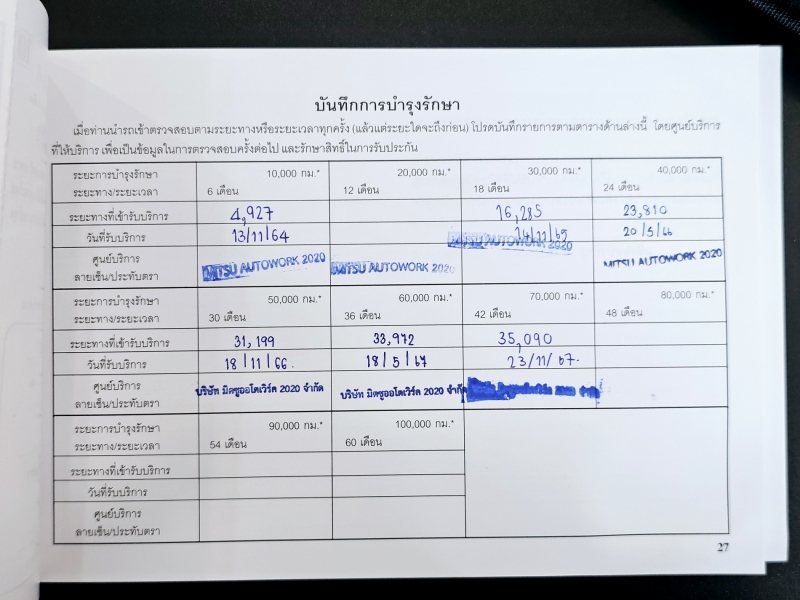 บันทึกการบำรุงรักษา
เมื่อท่านนำรถเข้าตรวจสอบตามระยะทางหรือระยะเวลาทุกครั้ง (แล้วแต่ระยะใดจะถึงก่อน) โปรดบันทึกรายการตามตารางด้านล่างนี้ โดยศูนย์บริการ
ที่ให้บริการ เพื่อเป็นข้อมูลในการตรวจสอบครั้งต่อไป และรักษาสิทธิ์ในการรับประกัน
ระยะการบำรุงรักษา 10,000 กม.* 20,000 กม.* 30,000 กม.* 40,000 กม.*
ระยะทาง/ระยะเวลา 6 เดือน 12 เดือน 18 เดือน 24 เดือน
ระยะทางที่เข้ารับบริการ 4,927 16,285 23,810
วันที่รับบริการ 13/11/64 20/5/66
ศูนย์บริการ MITSU AUTOWORK 2020 MITSU AUTOWORK 2020 AUTOWORK 2020 MITSU AUTOWORK 2020
ลายเซ็น/ประทับตรา
ระยะการบำรุงรักษา 50,000 กม.* 60,000 กม.* 70,000 กม.* 80,000 กม.*
ระยะทาง/ระยะเวลา 30 เดือน 36 เดือน 42 เดือน 48 เดือน
ระยะทางที่เข้ารับบริการ 31,199 33,972 35,090
วันที่รับบริการ 18/11/66. 18/5/67 23/11/67.
ศูนย์บริการ บริษัท มิตซูออโตเวิร์ค 2020 จำกัด บริษัท มิตซูออโตเวิร์ค 2020 จำกัด
ลายเซ็น/ประทับตรา
ระยะการบำรุงรักษา 90,000 กม.* 100,000 กม.*
ระยะทาง/ระยะเวลา 54 เดือน 60 เดือน
ระยะทางที่เข้ารับบริการ
วันที่รับบริการ
ศูนย์บริการ
ลายเซ็น/ประทับตรา
27